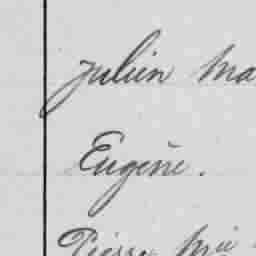 Julien Ma
Eugène.
Pierre Mi